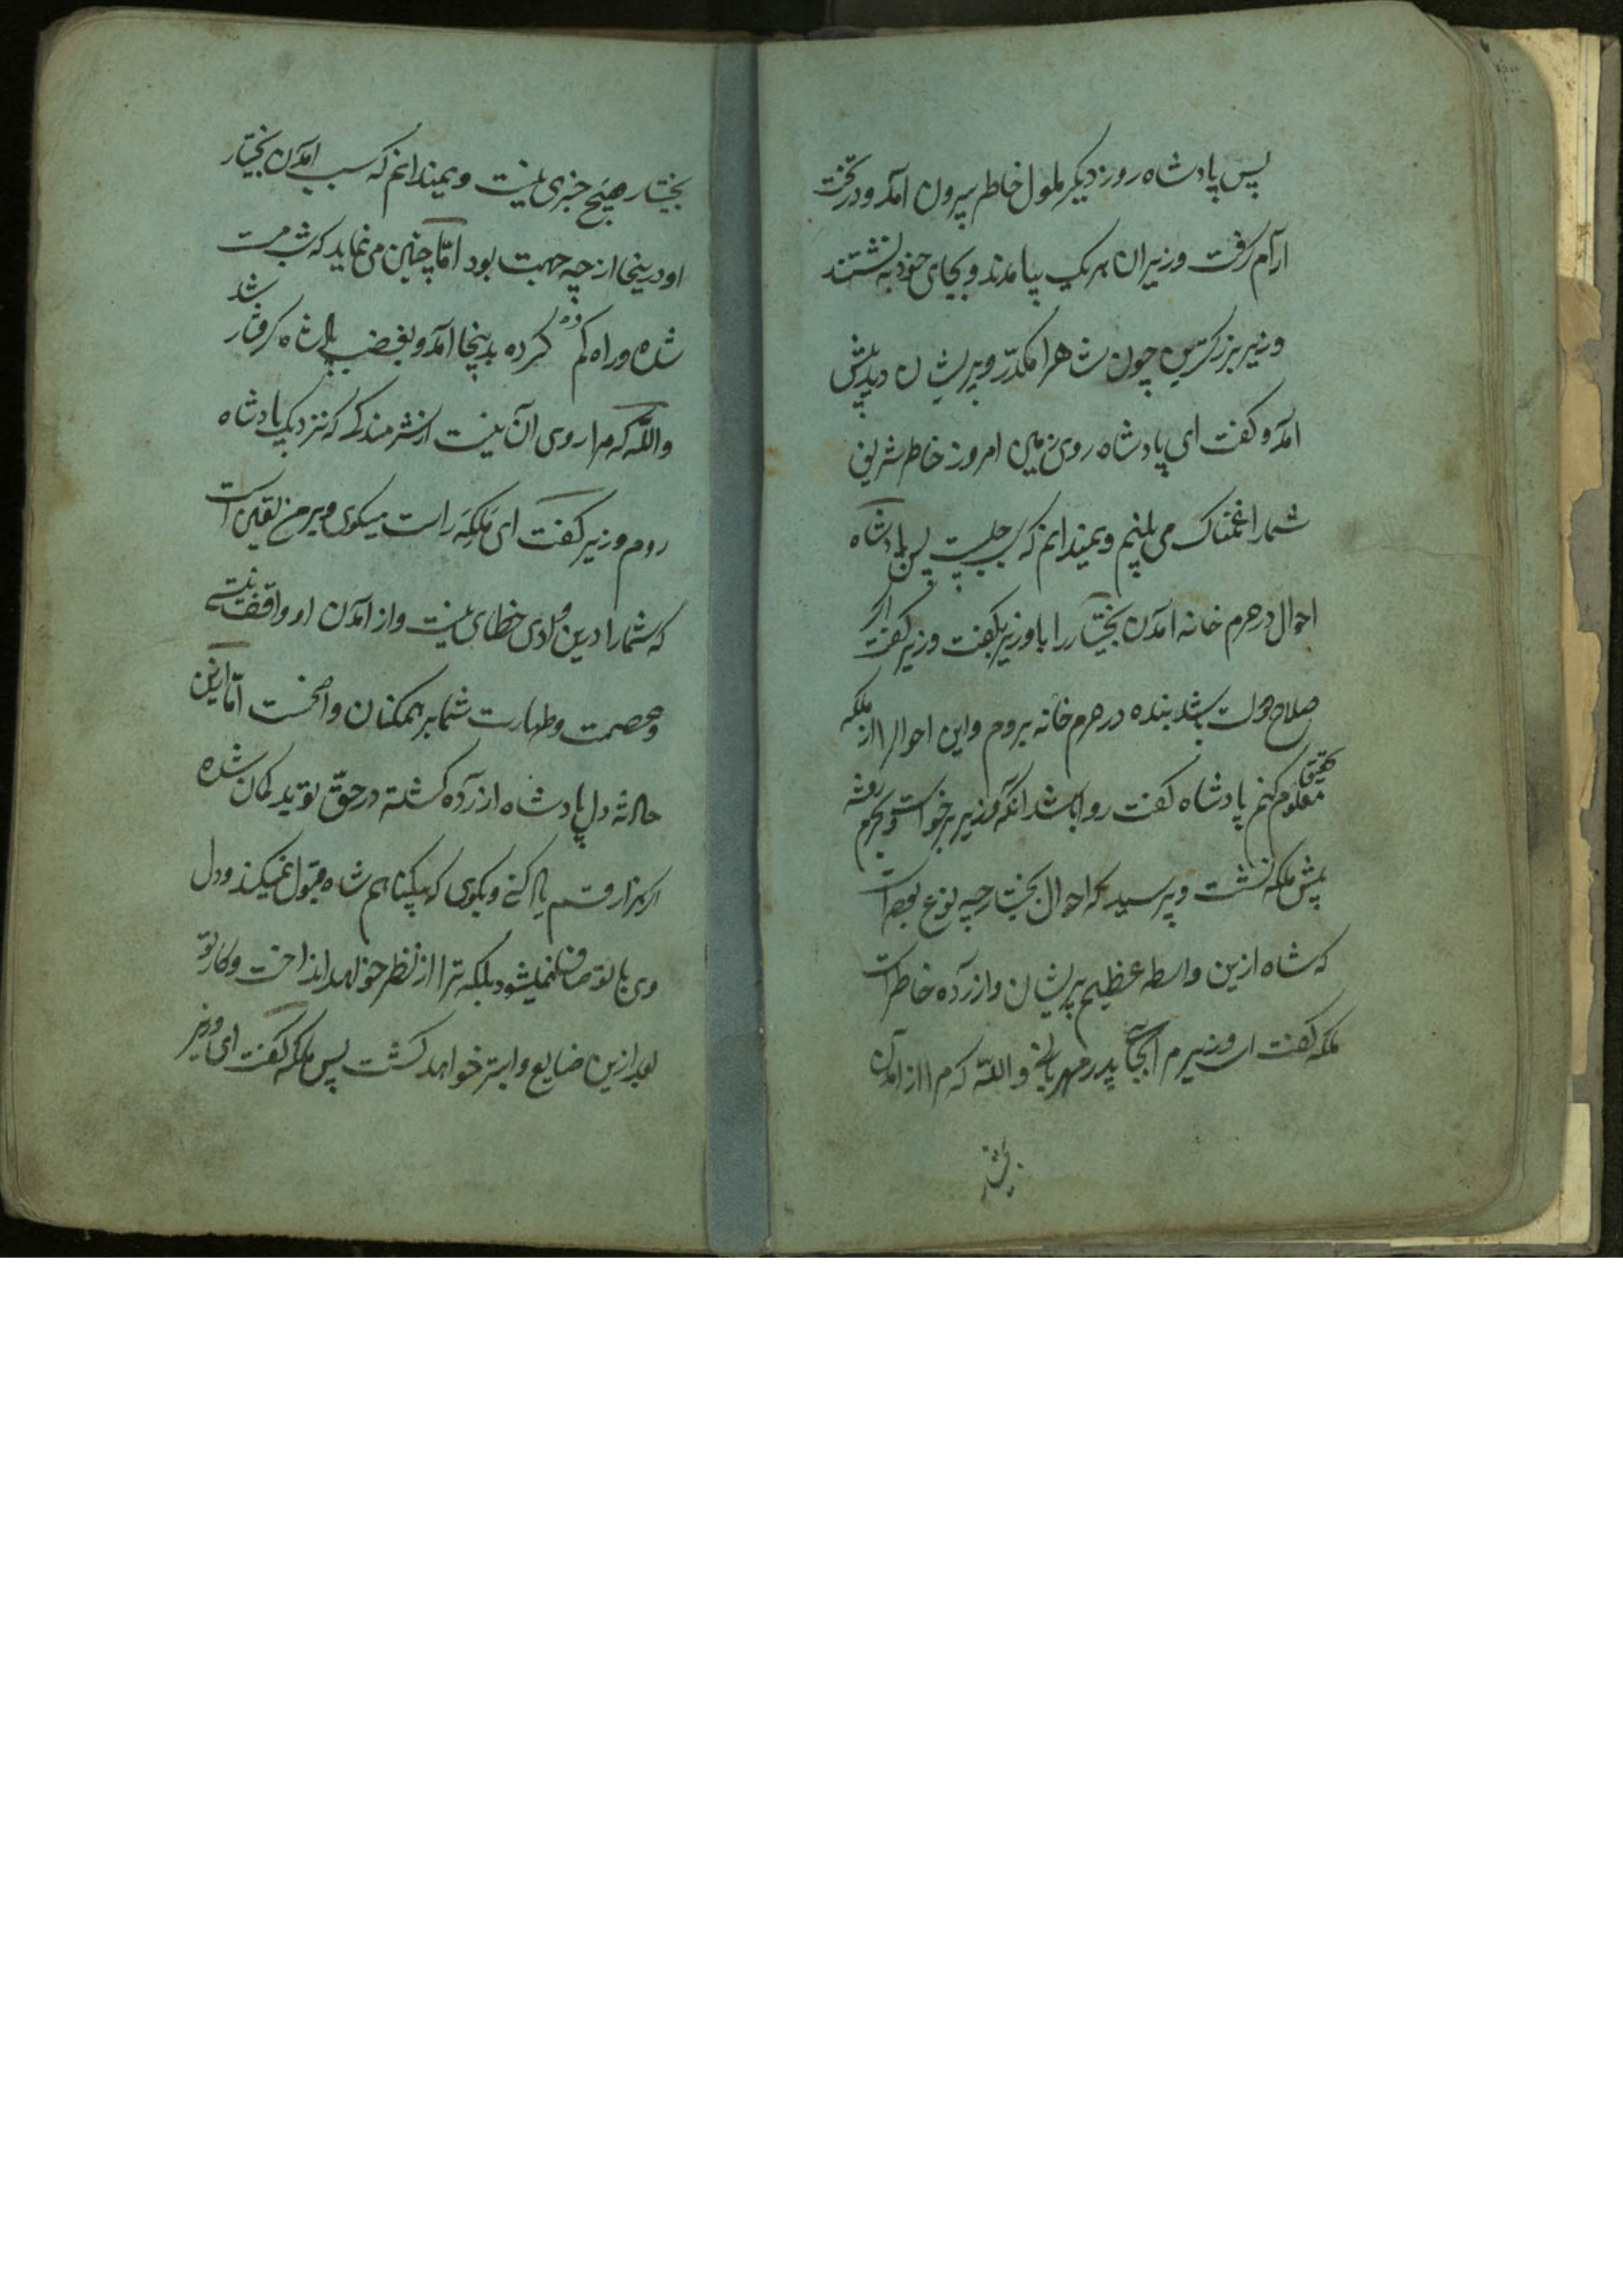 پس پادشاه روز دیگر ملول خاطر بیرون آمد و در تخت
آرام گرفت وزیران هر یک بیامدند و بجای خود به نشستند
وزیر بزرکترین چون شاه را مکدّر و پریشان دید پیش
آمد و کفت ای پادشاه روی زمین امروز خاطر شریف
شما را غمناک می بینم و نمیدانم که سبب چیست پس پادشاه
احوال در حرم خانه آمدن بختیار را با وزیر بکفت وزیر کفت اکر
صلاح دولت باشد بنده در حرم خانه بروم و این احوال را از ملکه
تحقیق معلوم کنم پادشاه کفت روا باشد آنکه وزیر برخواست و بحرم رفته
پیش ملکه نشست و پرسید که احوال بختیار چه نوع بوده است
که شاه ازین واسطه عظیم پریشان و ازرده خاطر است
ملکه کفت ای وزیر مرا بجای پدر مهربانی و اللّه که مرا از آمدن
بختیار
بختیار هیچ خبری نیست و نمیدانم که سبب آمدن بختیار
او درینجا از چه جهت بود امّا چنین می نماید که شب مست
شده و راه کم کرده بدینجا آمد و بغضب پادشاه کرفتار شد
واللّه که مرا روی آن نیست از شرمندکی که نزدیک پادشاه
روم وزیر کفت ای ملکه راست میکوی و بر من یقین است
که شما را درین وادی خطای نیست و از آمدن او واقف نیستی
و عصمت و طهارت شما بر همکنان واضحست امّا ازین
حادثه دل پادشاه ازرده کشته در حقّ تو بد کمان شده
اکر هزار قسم یاد کنی و بکوی که بیکناهم شاه قبول نمیکند و دل
وی با تو صاف نمیشود بلکه ترا از نظر خواهد انداخت و کار تو
بعد ازین ضایع و ابتر خواهد کشت پس ملکه کفت ای وزیر